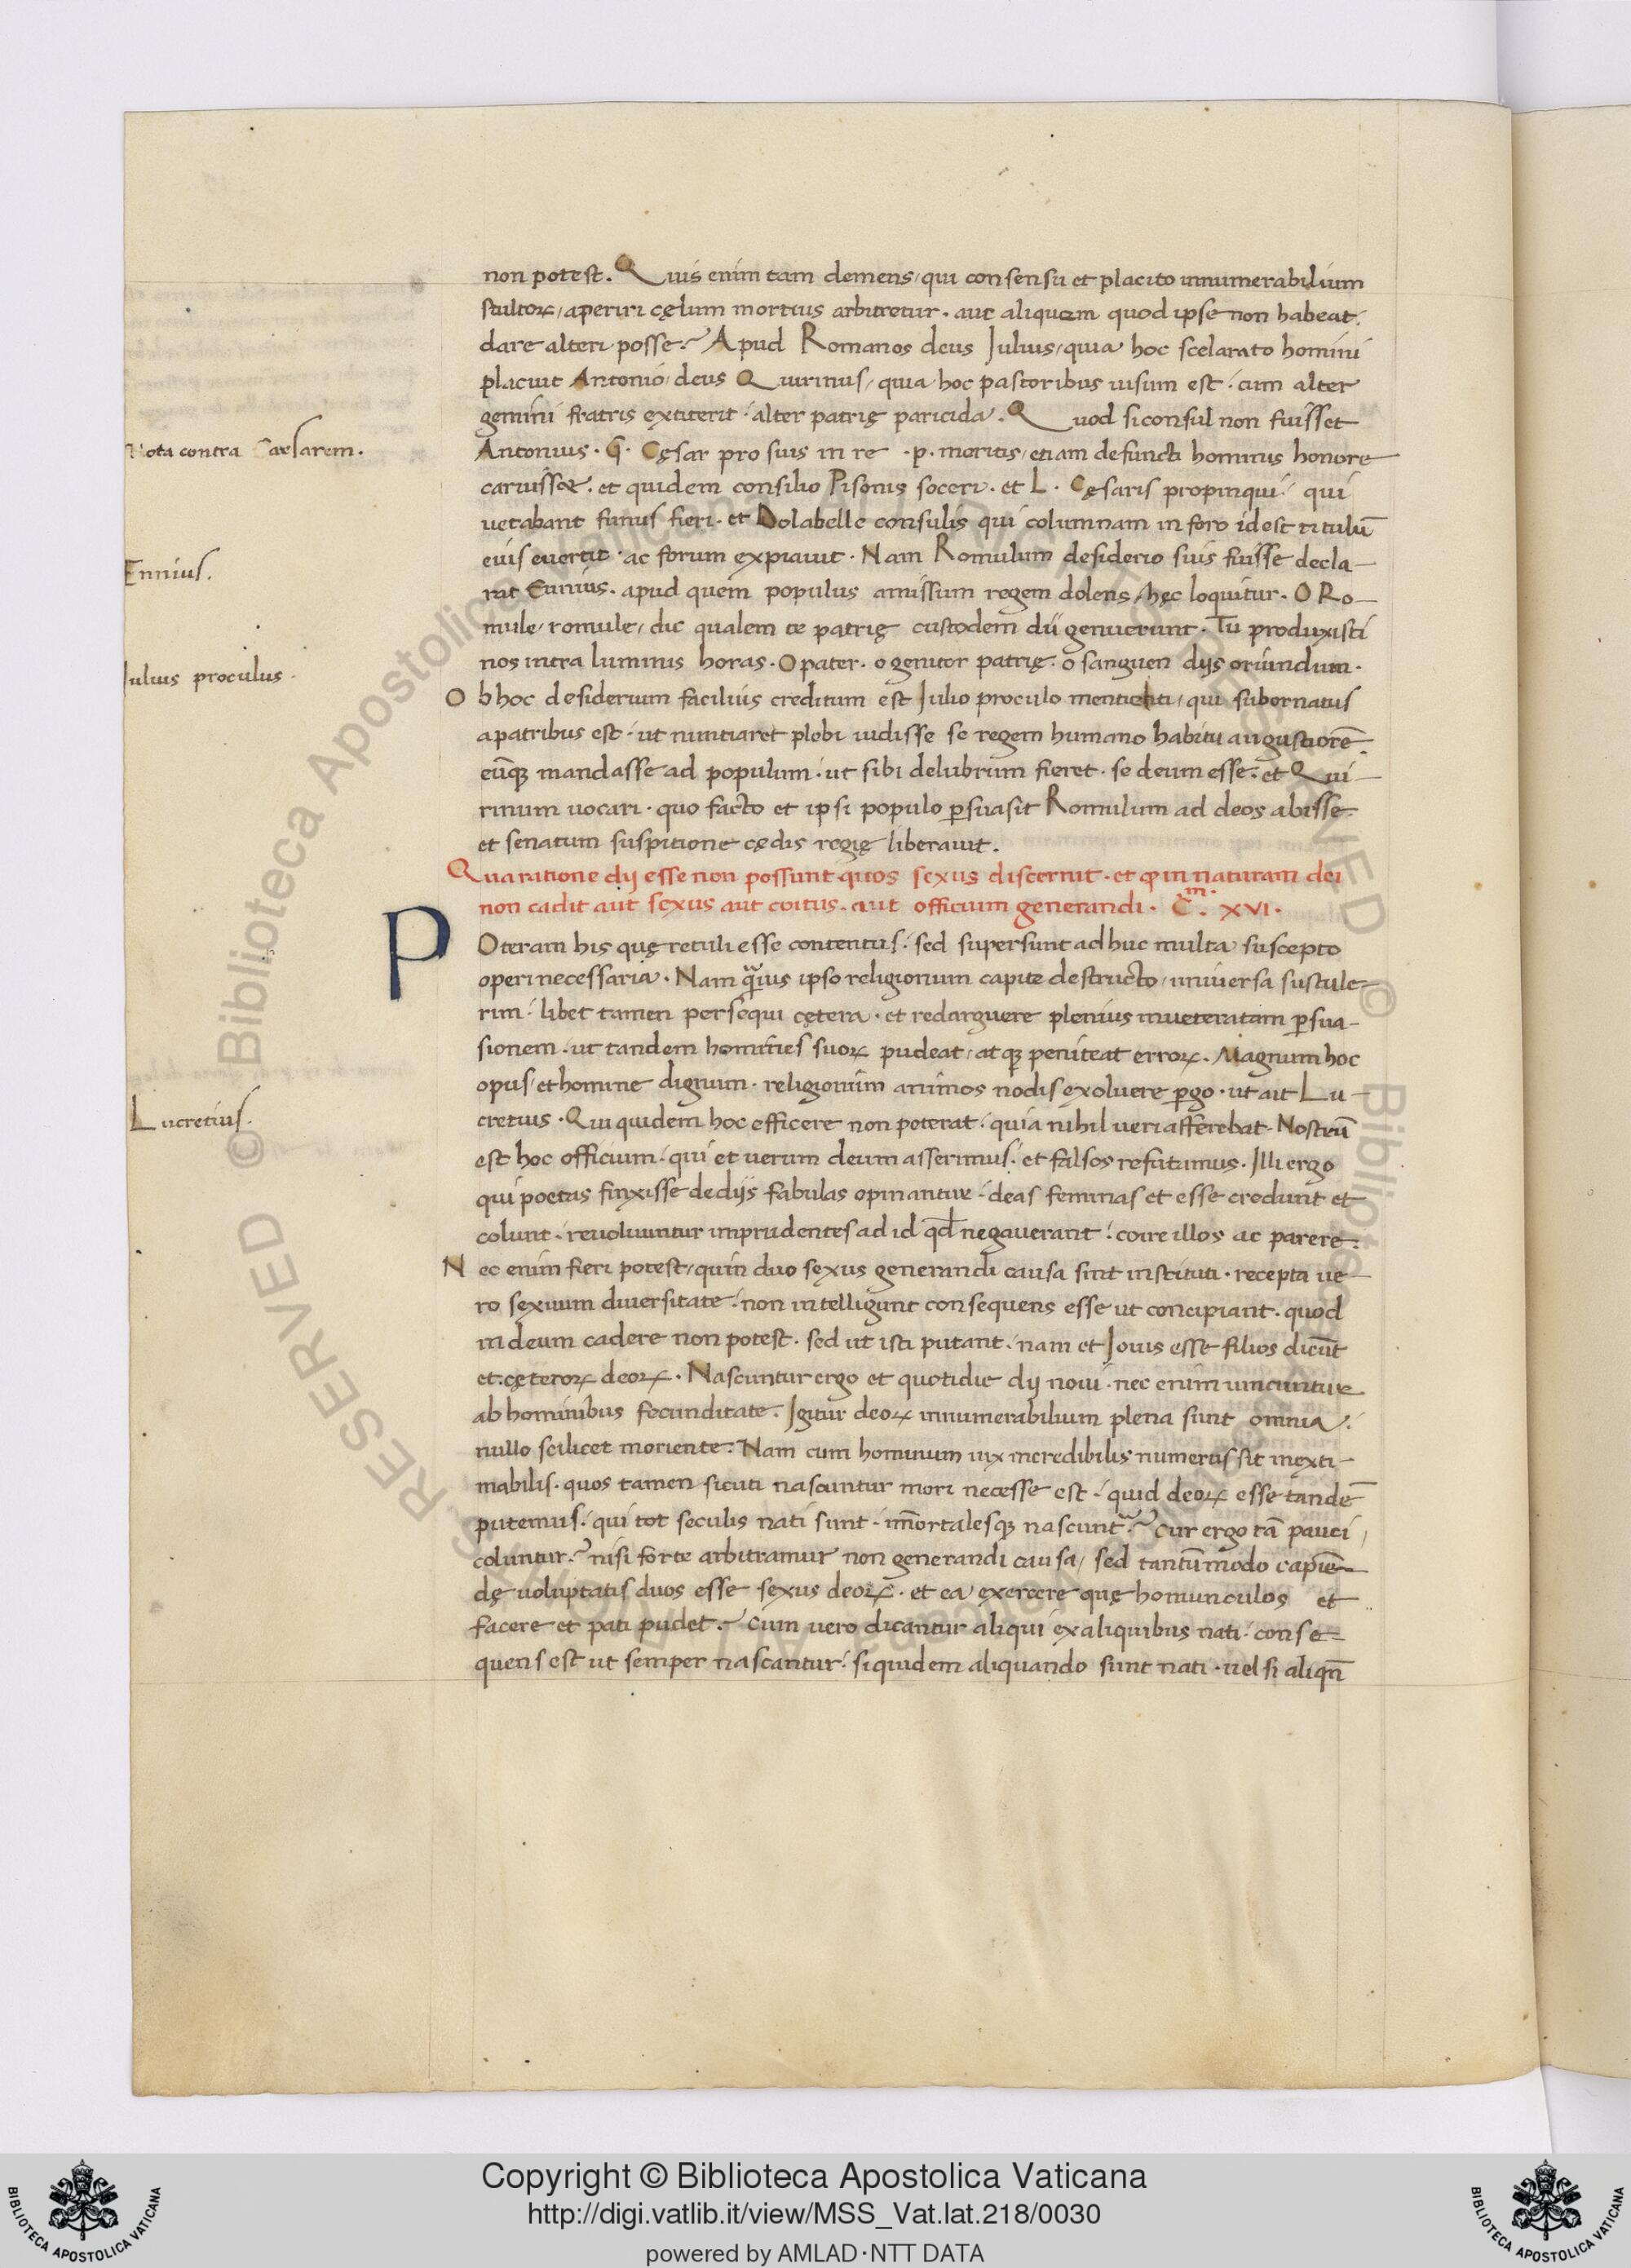 non potest. Quis enim tam demens, qui consensu et placito innumerabilium
stultoꝝ, aperiri cęlum mortuis arbitretur. aut aliquem quod ipse non habeat.
dare alteri posse? Apud Romanos deus Julius, quia hoc scelarato homini
placuit Antonio, deus Quirinus, quia hoc pastoribus uisum est. cum alter
gemini fratris extiterit. alter patrię paricida. Quod si consul non fuisset
Nota contra Caesarem.
Antonius. G. Cęsar pro suis in re .p. meritis, etiam defuncti hominis honore
caruisset. et quidem consilio Pisonis soceri. et L. Cęsaris propinqui. qui
uetabant funus fieri. et Dolabelle consulis qui columnam in foro idest titulū
eius euertit. ac forum expiauit. Nam Romulum desiderio suis fuisse decla-
Ennius.
rat Ennius. apud quem populus amissum regem dolens, hęc loquitur. O Ro-
mule, romule, dic qualem te patrię custodem dii genuerunt. Tu produxisti
nos intra luminis horas. O pater. o genitor patrię. o sanguen dijs oriundum.
Julius proculus.
Ob hoc desiderium facilius creditum est Julio proculo mentienti, qui subornatus
a patribus est. ut nuntiaret plebi uidisse se regem humano habitu augustiorē.
eūqꝫ mandasse ad populum. ut sibi delubrum fieret. se deum esse. et Qui-
rinum uocari. quo facto et ipsi populo ꝑsuasit Romulum ad deos abisse.
et senatum suspitione cędis regię liberauit.
Qua ratione dij esse non possunt quos sexus discernit. et ꝙ in naturam dei
non cadit aut sexus aut coitus. aut officium generandi. C.m XVI.
POteram his quę retuli esse contentus. sed supersunt adhuc multa suscepto
operi necessaria. Nam q̄uis ipso religionum capite destructo, uniuersa sustule-
rim. libet tamen persequi cętera. et redarguere plenius inueteratam ꝑsua-
sionem. ut tandem homines suoꝝ pudeat, atqꝫ peniteat erroꝝ. Magnum hoc
opus, et homine dignum. religionum animos nodis exoluere ꝑgo. ut ait Lu-
Lucretius.
cretius. Qui quidem hoc efficere non poterat. quia nihil ueri afferebat. Nostrū
est hoc officium. qui et uerum deum asserimus. et falsos refutamus. Illi ergo
qui poetas finxisse de dijs fabulas opinantur. deas feminas et esse credunt et
colunt. reuoluuntur imprudentes ad id qd̄ negauerant. coire illos ac parere.
Nec enim fieri potest, quin duo sexus generandi causa sint instituti. recepta ue-
ro sexuum diuersitate. non intelligunt consequens esse ut concipiant. quod
in deum cadere non potest. sed ut isti putant. nam et Jouis esse filios dicūt
et. cęteroꝝ deoꝝ. Nascuntur ergo et quotidie dij noui. nec enim uincuntur
ab hominibus fecunditate. Igitur deoꝝ innumerabilium plena sunt omnia.
nullo scilicet moriente. Nam cum hominum uix incredibilis numerus sit inexti-
mabilis. quos tamen sicuti nascuntur mori necesse est. quid deoꝝ esse tandē
putemus. qui tot seculis nati sunt. im̄ortalesqꝫ nascunt̄? Cur ergo tā pauci
coluntur? nisi forte arbitramur non generandi causa, sed tantūmodo capiēn
dę uoluptatis duos esse sexus deoꝝ. et ea exercere quę homunculos et
facere et pati pudet? Cum uero dicantur aliqui ex aliquibus nati. conse=
quens est ut semper nascantur. siquidem aliquando sunt nati. uel si aliqn̄
Copyright © Biblioteca Apostolica Vaticana
http://digi.vatlib.it/view/MSS_Vat.lat.218/0030
powered by AMLAD·NTT DATA
BIBLIOTECA APOSTOLICA VATICANA
BIBLIOTECA APOSTOLICA VATICANA